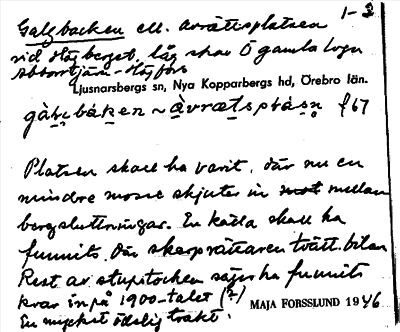 1-2
Galgbacken ell. avrättsplatsen
vid Högberget, låg strax Ö gamla vägen
Abborrtjärn - Högfors
Ljusnarsbergs sn, Nya Kopparbergs hd, Örebro län.
~ f 67
Platsen skall ha varit, där nu en
mindre mosse skjuter in mot mellan
bergsluttningar. En källa skall ha
funnits, där skarprättaren tvätt. bilan
Rest av stupstocken säges ha funnits
kvar in på 1900-talet (?)
En mycket ödslig trakt.
MAJA FORSSLUND 1946